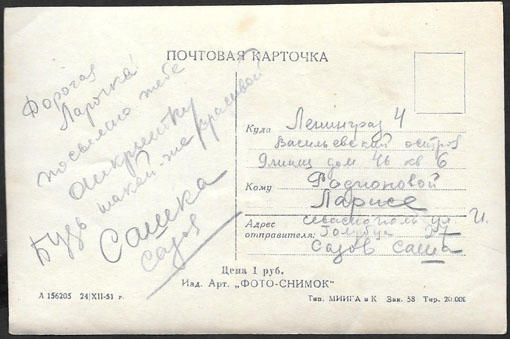 ПОЧТОВАЯ КАРТОЧКА
Дорогая
Ларочка!
посылаю тебе
открытку
Будь такой-же красивой
Сашка
Сазов
Куда Ленинград 4
Васильевский остров
линия дом 46 кв 6
Кому Родионовой
Ларисе
Адрес отправителя: Севастополь ул. И.
Голубца
Сазов Саша
Цена 1 руб.
Изд. Арт. „ФОТО-СНИМОК"
Л 156205 24/XII-51 г.
Тип. МИИГА и К Зак. 58 Тир. 20.000